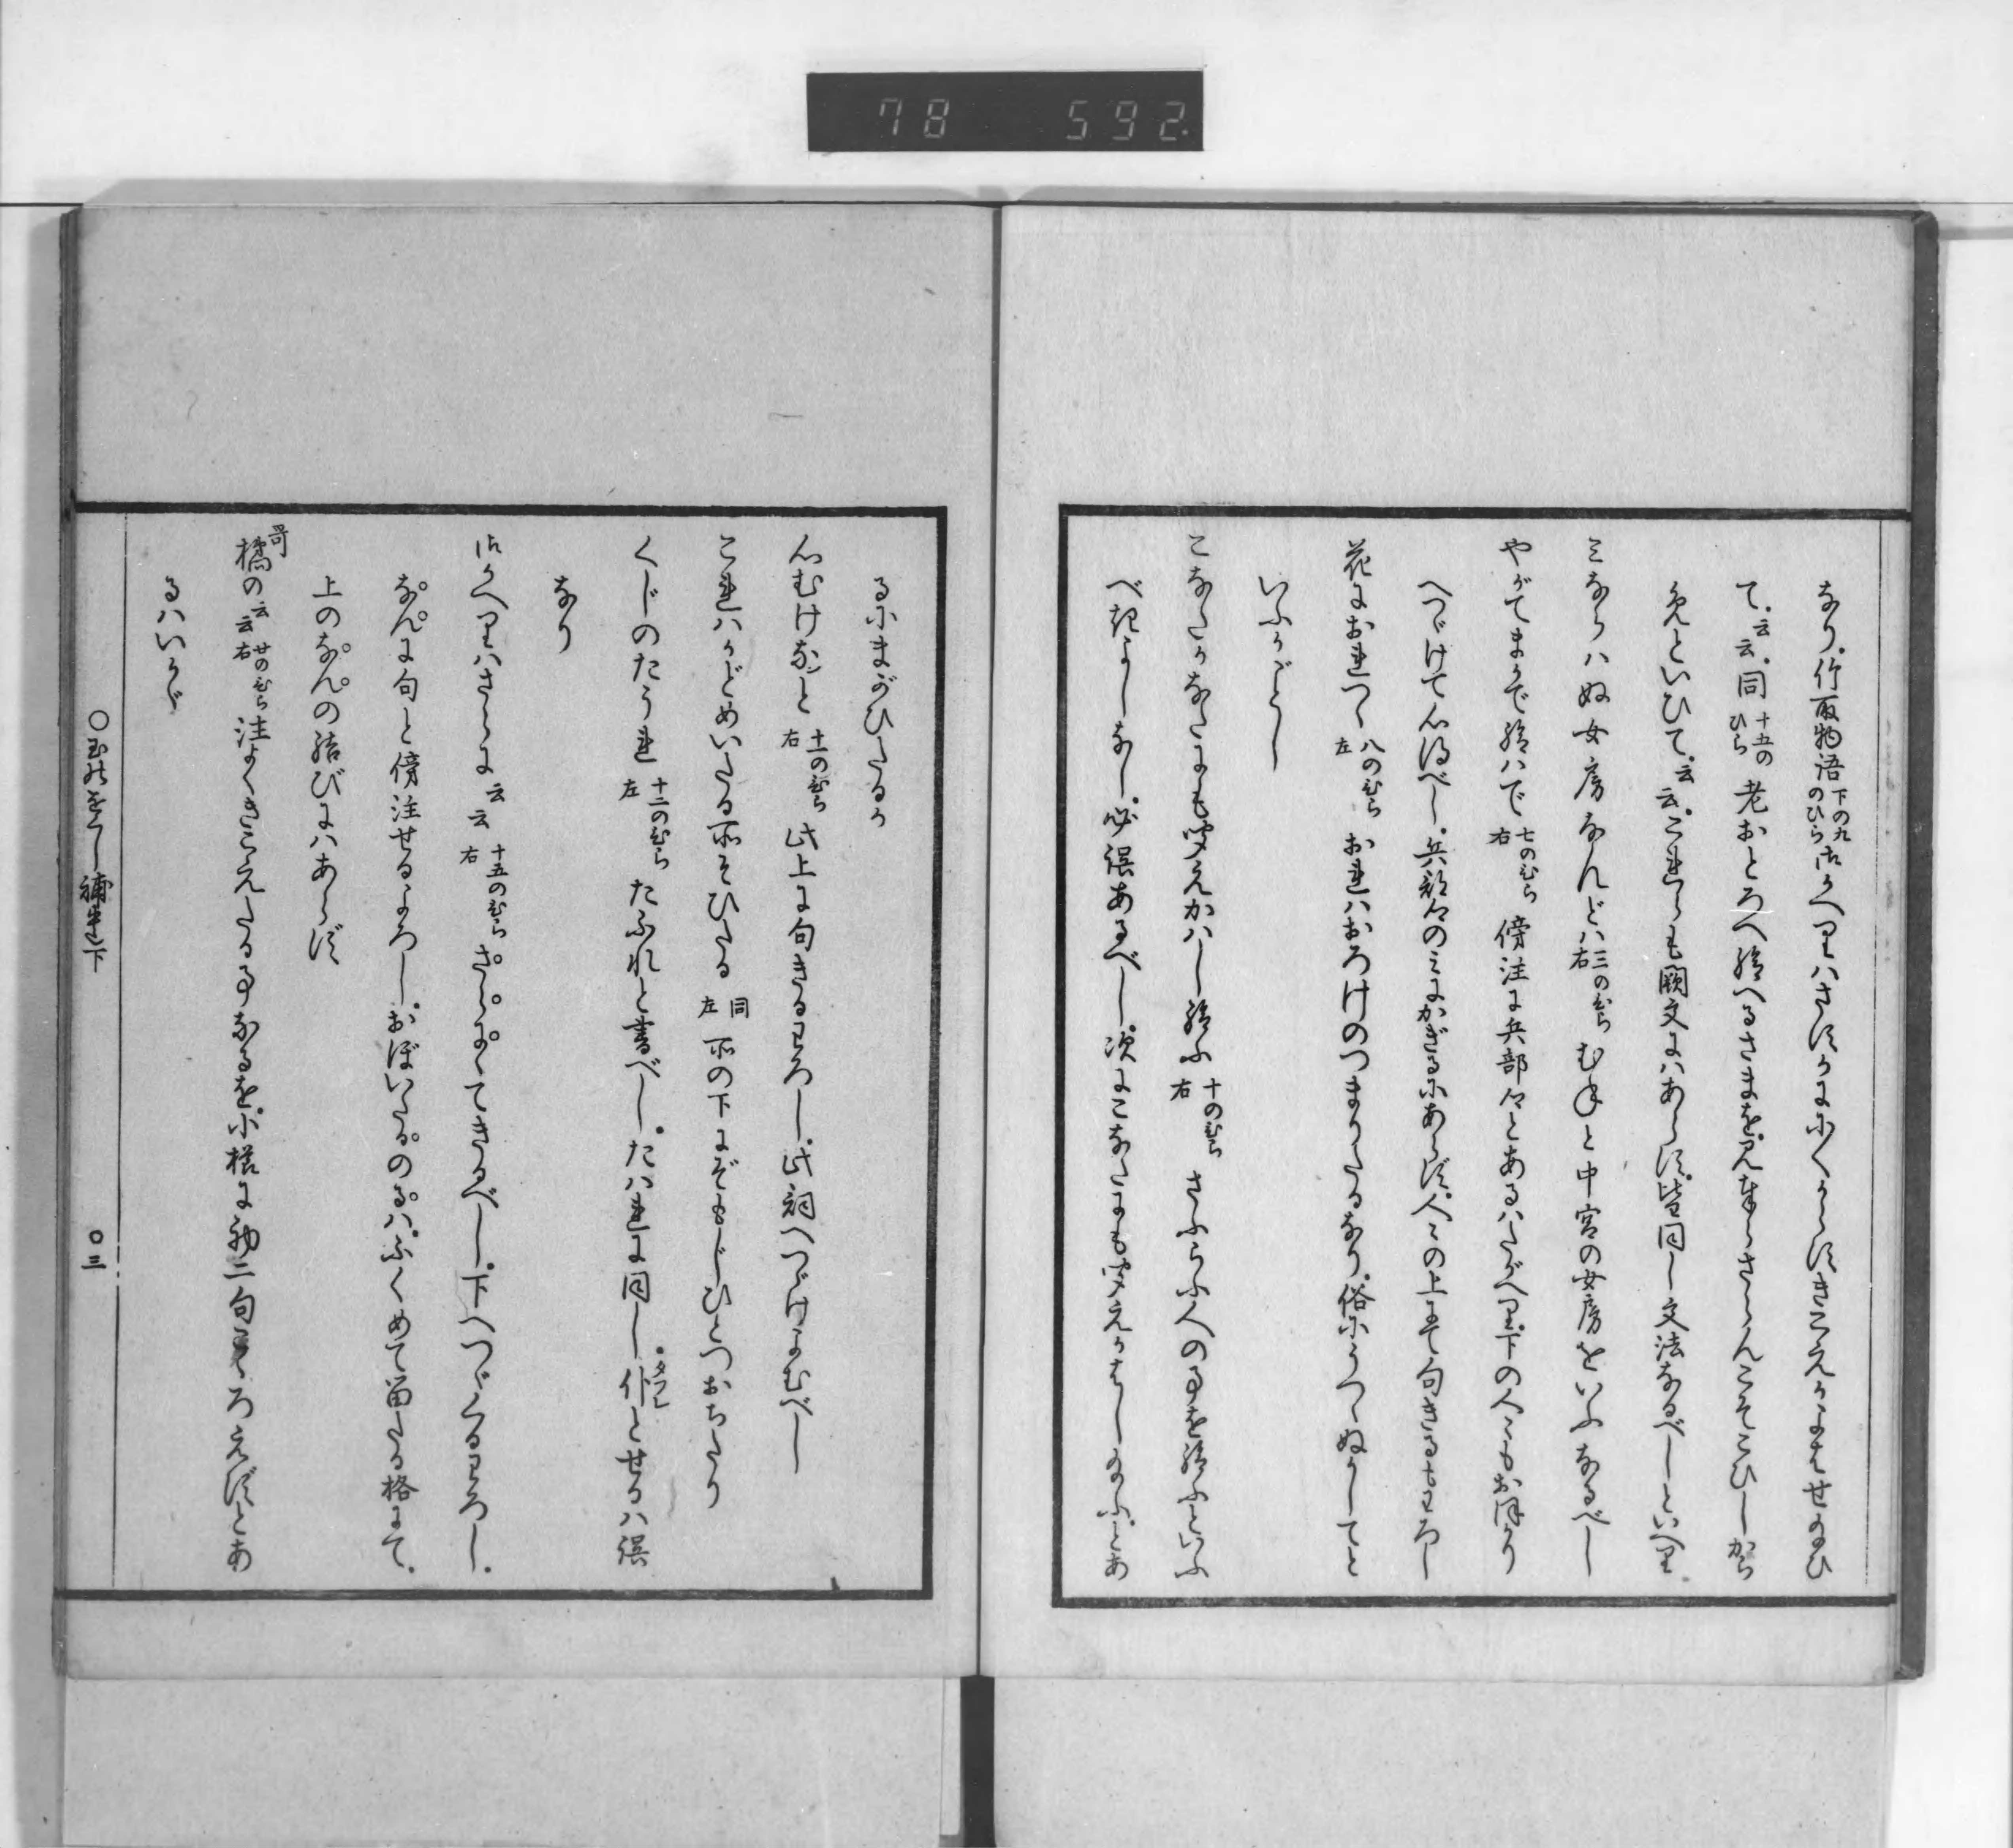 78 592.
なり。竹取物語下の九のひら御かへりハさすかににくからすきこえかよはせ給ひ
て。云云。同十五のひら老おとろへ給へるさまを見奉らさらんこそこひしから
めといひて。云云。これらも闕文にハあらす。皆同し文法なるべしといへり
ミならハぬ女房なんどハ三のひら右むねと中宮の女房をいふなるべし
やがてまかで給ハで七のひら右傍注に兵部々とあるハたがへり。下の人ミもおほかり
へつゞけて心得べし。兵部々のミにかぎるにあらず。人ミの上にて句きるもわろし
花におれつゝ八のひら左おれハおろけのつまりたるなり。俗にうつゝぬかしてと
いふがごとし
こなたかなたにも聞えかハし給ふ十のひら右さふらふ人の事を給ふといふ
べきよしなし。必誤あるべし。次にこなたにも聞えかはし給ふ。とあ
るにまがひたるか
心むけなンと十一のひら右此上に句きるわろし。此詞へつゞけよむべし
これハかどめいたる所そひたる同左所の下にぞもじひとつおちたり
くじのたうれ十二のひら左たふれと書べし。たハれに同し。仆タフレとせるハ誤
なり
御かへりハさらに云云十五のひら右さらにてきるべし。下へつゞくるわろし。
なんに句と傍注せるよろし。おぼいたるのるハ。ふくめて留たる格にて。
上のなんの結びにハあらず
哥橘の云云廿のひら右注よくきこえたる事なるを。小櫛に初二句こゝろえずとあ
るハいかゞ
〇玉のをくし補遺下 〇三